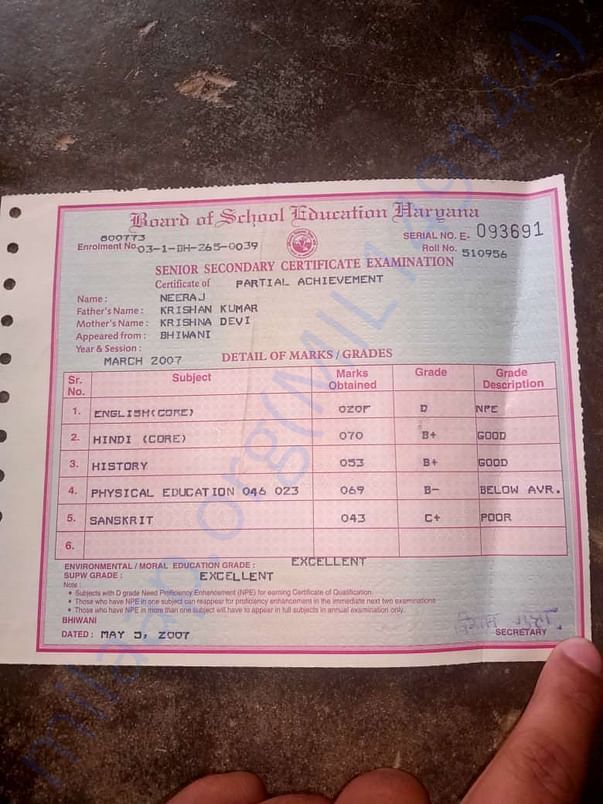 Board of School Education Haryana
800773
Enrolment No. 03-1-BH-265-0039
SERIAL NO. E- 093691
Roll No. 510956
SENIOR SECONDARY CERTIFICATE EXAMINATION
Certificate of PARTIAL ACHIEVEMENT
Name : NEERAJ
Father's Name : KRISHAN KUMAR
Mother's Name : KRISHNA DEVI
Appeared from : BHIWANI
Year & Session :
MARCH 2007
DETAIL OF MARKS / GRADES
Sr. No. Subject Marks Obtained Grade Grade Description
1. ENGLISH(CORE) 020F D NPE
2. HINDI (CORE) 070 B+ GOOD
3. HISTORY 053 B+ GOOD
4. PHYSICAL EDUCATION 046 023 069 B- BELOW AVR.
5. SANSKRIT 043 C+ POOR
6.
ENVIRONMENTAL / MORAL EDUCATION GRADE : EXCELLENT
SUPW GRADE : EXCELLENT
Note :
• Subjects with D grade Need Proficiency Enhancement (NPE) for earning Certificate of Qualification
• Those who have NPE in one subject can reappear for proficiency enhancement in the immediate next two examinations
• Those who have NPE in more than one subject will have to appear in full subjects in annual examination only.
BHIWANI
DATED : MAY 5, 2007
SECRETARY